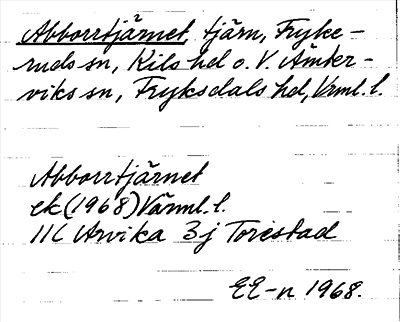 Abborrtjärnet, tjärn, Fryke-
ruds sn, Kils hd o. V. Ämter-
viks sn, Fryksdals hd, Vrml. l.
Abborrtjärnet
ek (1968) Värml. l.
11C Arvika 3j Torestad
EE-n 1968.